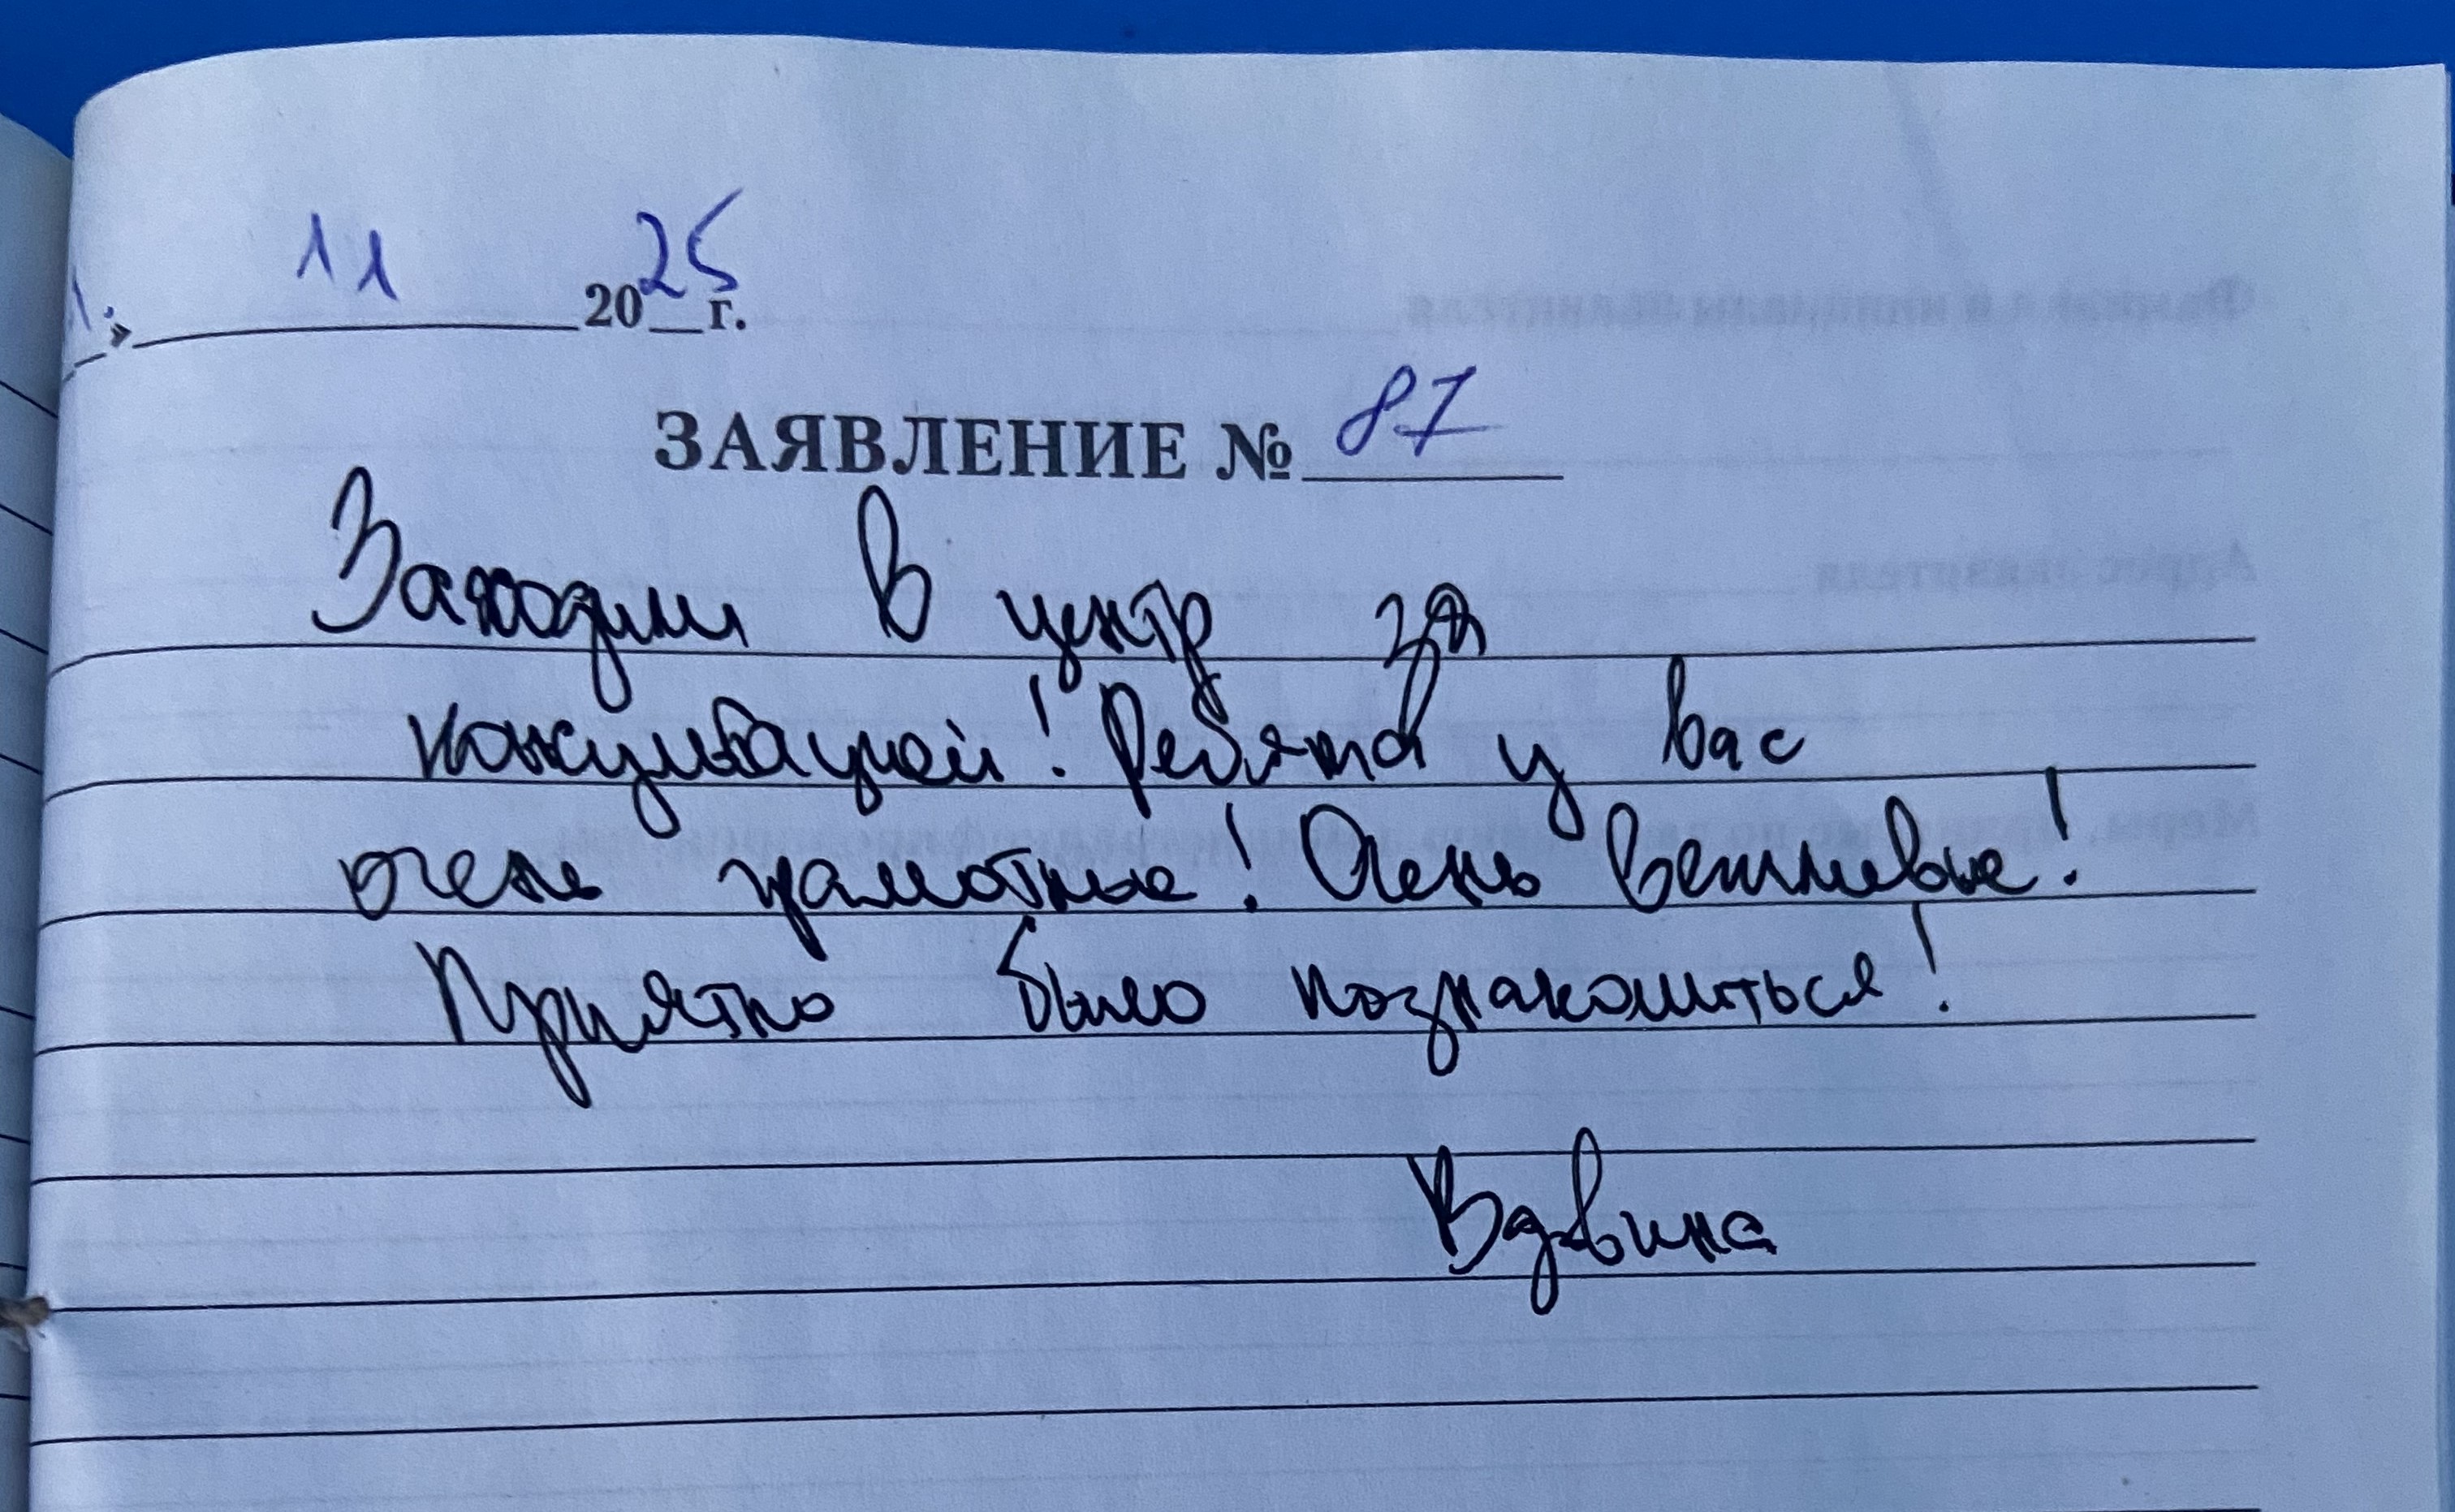 11 2025г.
ЗАЯВЛЕНИЕ № 87
Заходили в центр за
консультацией! Ребята у вас
очень грамотные! Очень вежливые!
Приятно было познакомиться!
Вдовина